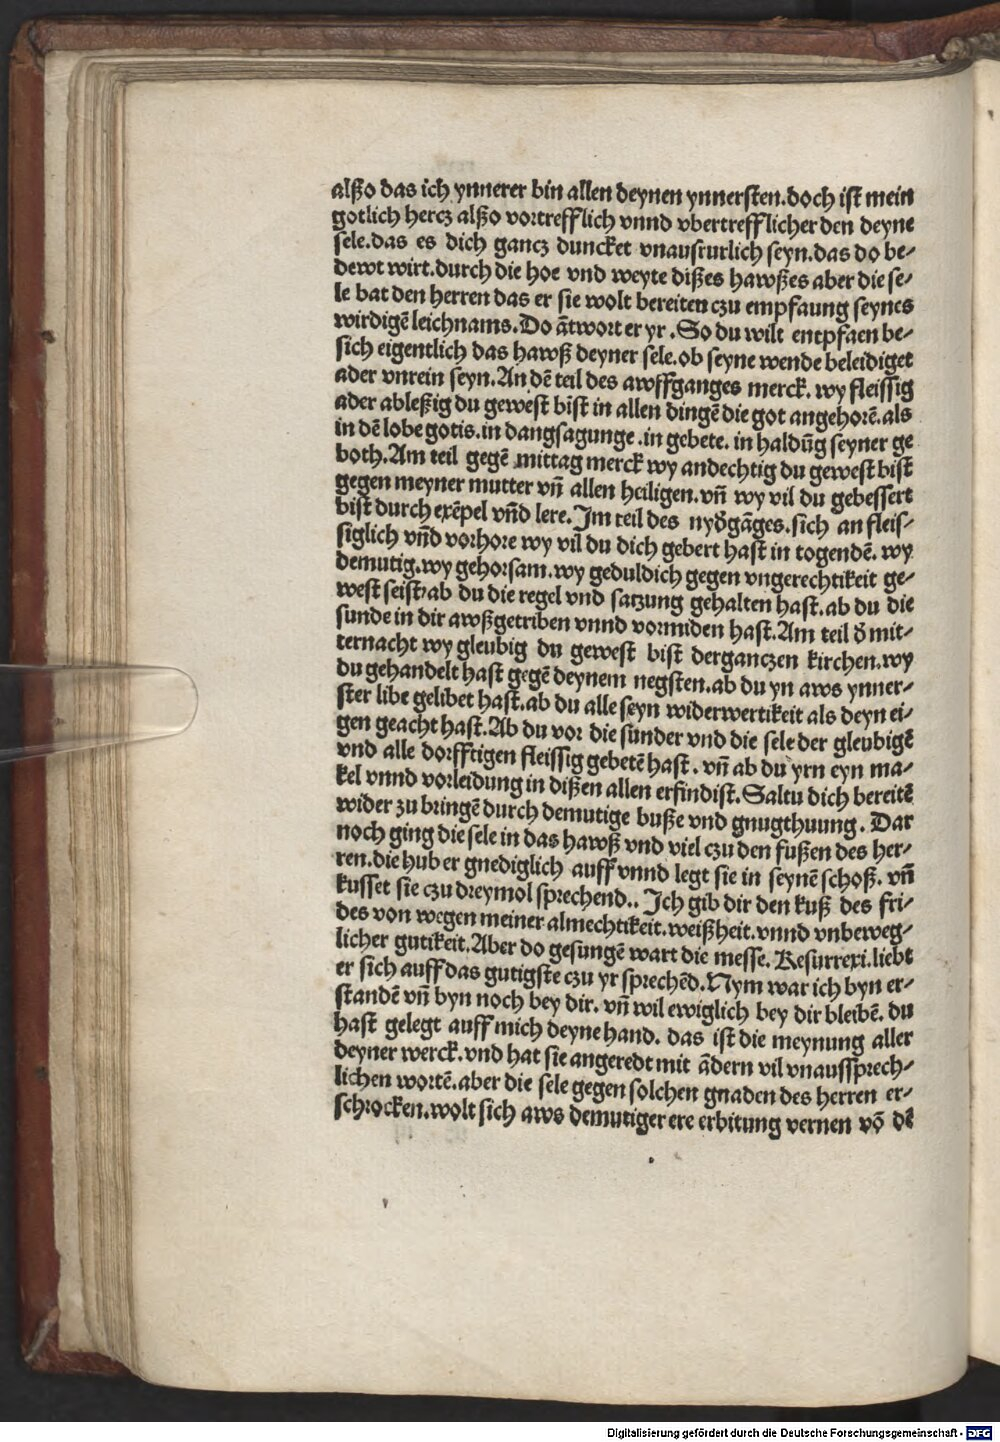 alßo das ich ynnerer bin allen deynen ynnersten.doch ist mein
gotlich hercz alßo vortrefflich vnnd vbertrefflicher den deyne
sele.das es dich gancz duncket vnausturlich seyn.das do be⸗
dewt wirt.durch die hoe vnd weyte dißes hawßes aber die se⸗
le bat den herren das er sie wolt bereiten czu empfaung seynes
wirdigē leichnams.Do ātwort er yr.So du wilt entpfaen be⸗
sich eigentlich das hawß deyner sele.ob seyne wende beleidiget
ader vnrein seyn.An dē teil des awffganges merck.wy fleissig
ader ableßig du gewest bist in allen dingē die got angehorē.als
in dē lobe gotis.in dangsagunge.in gebete.in haldūg seyner ge
both.Am teil gegē mittag merck wy andechtig du gewest bist
gegen meyner mutter vn̄ allen heiligen.vn̄ wy vil du gebessert
bist durch exēpel vn̄d lere.Im teil des nyd̕gāges.sich an fleis⸗
siglich vn̄d vorhore wy vil du dich gebert hast in togendē.wy
demutig.wy gehorsam.wy geduldich gegen vngerechtikeit ge⸗
west seist/ab du die regel vnd satzung gehalten hast.ab du die
sunde in dir awßgetriben vnnd vormiden hast.Am teil d̕ mit⸗
ternacht wy gleubig du gewest bist derganczen kirchen.wy
du gehandelt hast gegē deynem negsten.ab du yn aws ynner⸗
ster libe gelibet hast.ab du alle seyn widerwertikeit als deyn ei⸗
gen geacht hast.Ab du vor die sunder vnd die sele der gleubigē
vnd alle dorfftigen fleissig gebetē hast.vn̄ ab du yrn eyn ma⸗
kel vnnd vorleidung in dißen allen erfindist.Saltu dich bereitē
wider zu bringē durch demutige buße vnd gnugthuung.Dar
noch ging die sele in das hawß vnd viel czu den fußen des her⸗
ren.die hub er gnediglich auff vnnd legt sie in seynē schoß.vn̄
kusset sie czu dreymol sprechend..Ich gib dir den kuß des fri⸗
des von wegen meiner almechtikeit.weißheit.vnnd vnbeweg⸗
licher gutikeit.Aber do gesungē wart die messe.Resurrexi.liebt
er sich auff das gutigste czu yr sprechēd.Nym war ich byn er⸗
standē vn̄ byn noch bey dir.vn̄ wil ewiglich bey dir bleibē.du
hast gelegt auff mich deyne hand.das ist die meynung aller
deyner werck.vnd hat sie angeredt mit ādern vil vnaussprech⸗
lichen wortē.aber die sele gegen solchen gnaden des herren er⸗
schrocken.wolt sich aws demutiger ere erbitung vernen vō dē
Digitalisierung gefördert durch die Deutsche Forschungsgemeinschaft - DFG